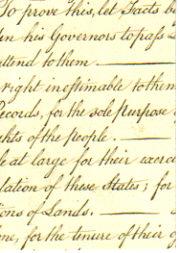 To prove this, let Facts b
his Governors to pass L
attend to them. ———
right inestimable to them
Records, for the sole purpose
hts of the people. ———
le at large for their exerci
lation of these States; for
ions of Lands. ———
one, for the tenure of their o